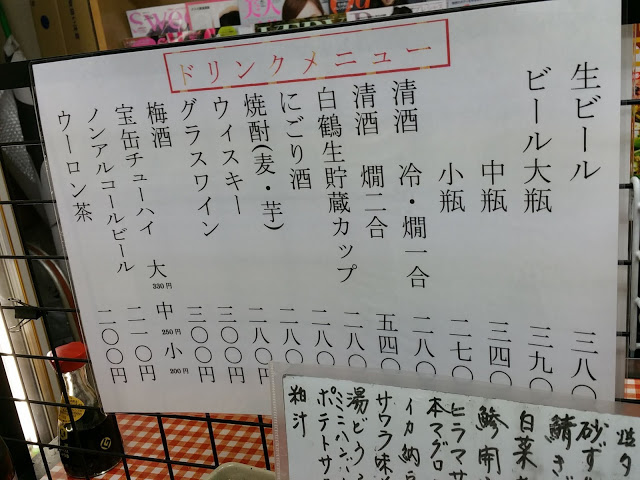 ドリンクメニュー
生ビール 三八〇
ビール大瓶 三九〇
中瓶 三四〇
小瓶 二七〇
清酒 冷・燗一合 二八〇
清酒 燗二合 五四〇
白鶴生貯蔵カップ 二八〇
にごり酒 二八〇
焼酎(麦・芋) 二八〇
ウィスキー 二八〇円
グラスワイン 二〇〇円
梅酒 二〇〇円
宝缶チューハイ 大330円 中250円 小200円
ノンアルコールビール 二一〇円
ウーロン茶 二〇〇円
砂ず
鯖き
白菜
鯵開
ヒラマサ
本マグロ
イカ納
サワラ味
湯どう
ミニハン
ポテトサ
粕汁